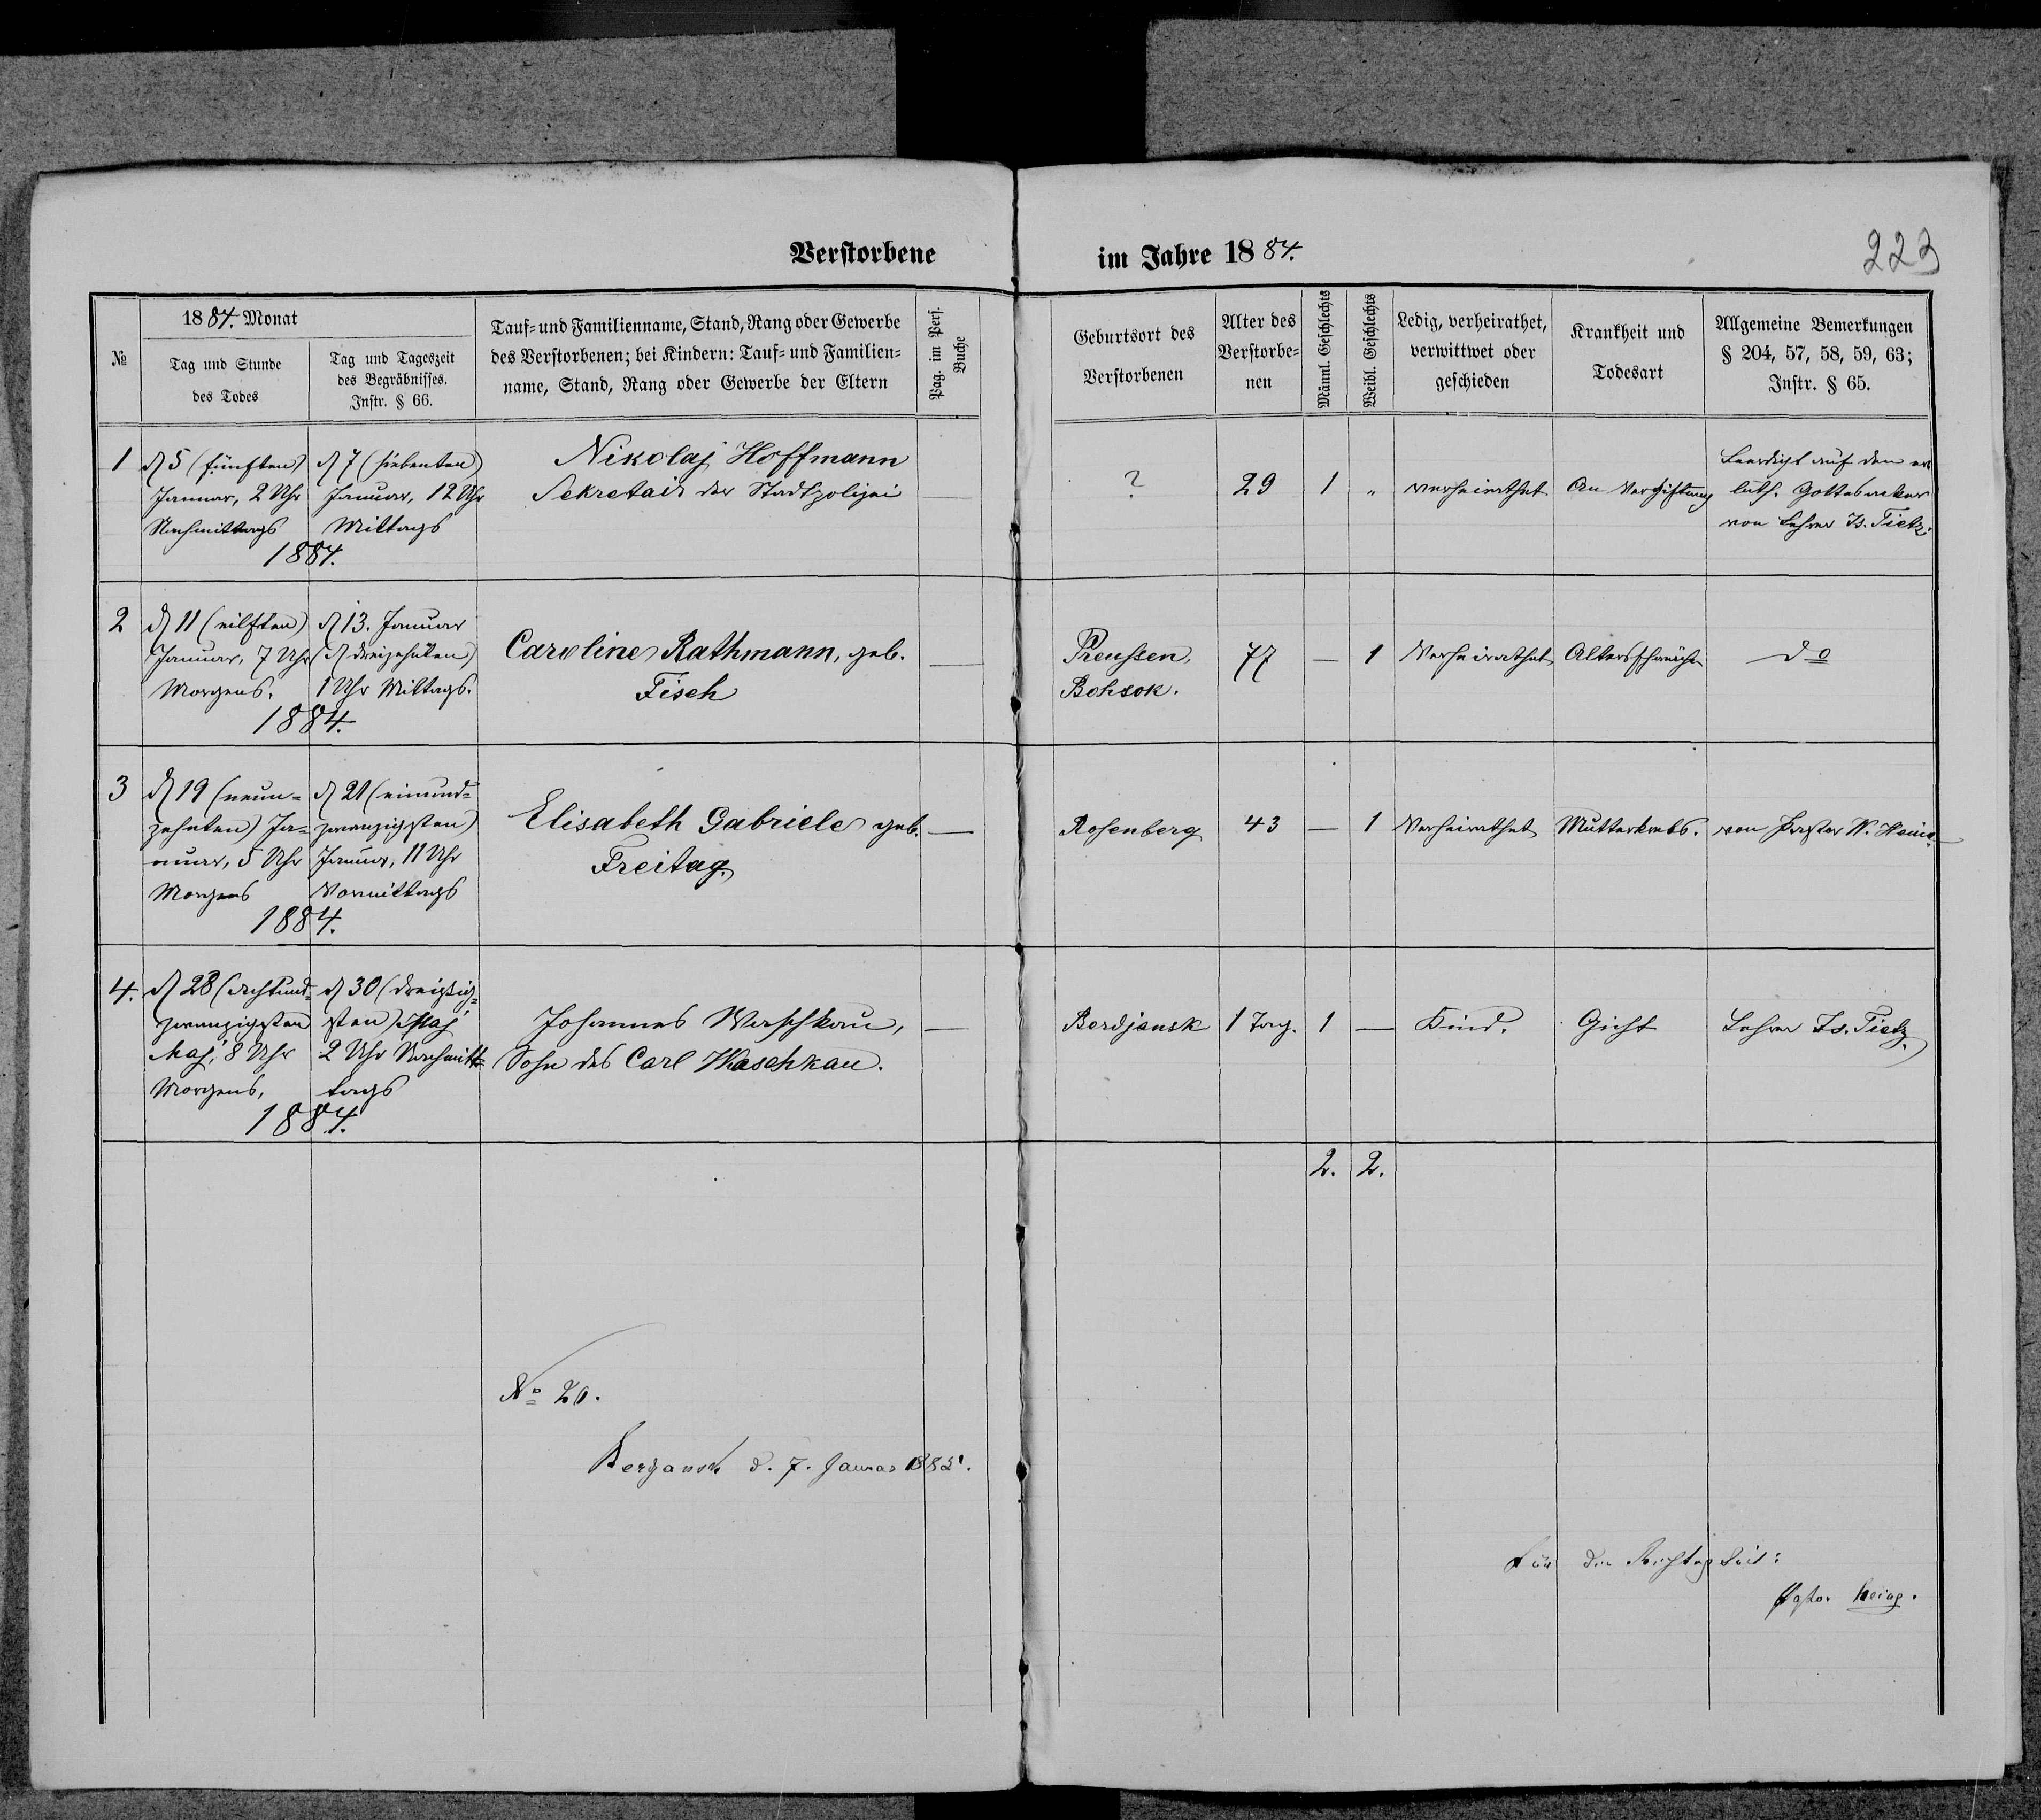 Verstorbene
im Jahre 1884.
223
№
1884. Monat
Tag und Stunde
des Todes
Tag und Tageszeit
des Begräbnisses.
Instr. § 66.
Tauf- und Familienname, Stand, Rang oder Gewerbe
des Verstorbenen; bei Kindern: Tauf- und Familien-
name, Stand, Rang oder Gewerbe der Eltern
Pag. im Pers.
Buche
Geburtsort des
Verstorbenen
Alter des
Verstorbe-
nen
Männl. Geschlechts
Weibl. Geschlechts
Ledig, verheirathet,
verwittwet oder
geschieden
Krankheit und
Todesart
Allgemeine Bemerkungen
§ 204, 57, 58, 59, 63;
Instr. § 65.
1
d 5 (fünften)
Januar, 2 Uhr
Nachmittags
d 7 (siebenten)
Januar, 12 Uhr
Mittags
1884.
Nikolaj Hoffmann
Sekretair der Stadtpolizei
?
29
1
"
verheirathet
An Vergiftung
Beerdigt auf dem ev
luth. Gottesacker
von Lehrer Is. Tietz.
2
d 11 (eilften)
Januar, 7 Uhr
Morgens.
d 13. Januar
(d dreizehnten)
1 Uhr Mittags.
1884.
Caroline Rathmann, geb.
Fisch
—
Preussen,
Bohsok.
77
—
1
Verheirathet
Altersschwäche
do
3
d 19 (neun-
zehnten) Ja-
nuar, 5 Uhr
Morgens
d 21 (einund-
zwanzigsten)
Januar, 11 Uhr
Vormittags
1884.
Elisabeth Gabriele geb.
Freitag.
—
Rosenberg
43
—
1
Verheirathet
Mutterkrebs.
von Pastor W. Heine
4.
d 28 (achtund-
zwanzigsten
Maj, 8 Uhr
Morgens,
d 30 (dreißig-
sten) Maj
2 Uhr Nachmit-
tags
1884.
Johannes Waschkau,
Sohn des Carl Waschkau.
—
Berdjansk
1 Tag.
1
—
Kind.
Gicht
Lehrer Is. Tietz.
2.
2.
№ 20.
Berdjansk d. 7. Januar 1885.
Für die Richtigkeit:
Pastor Heine.